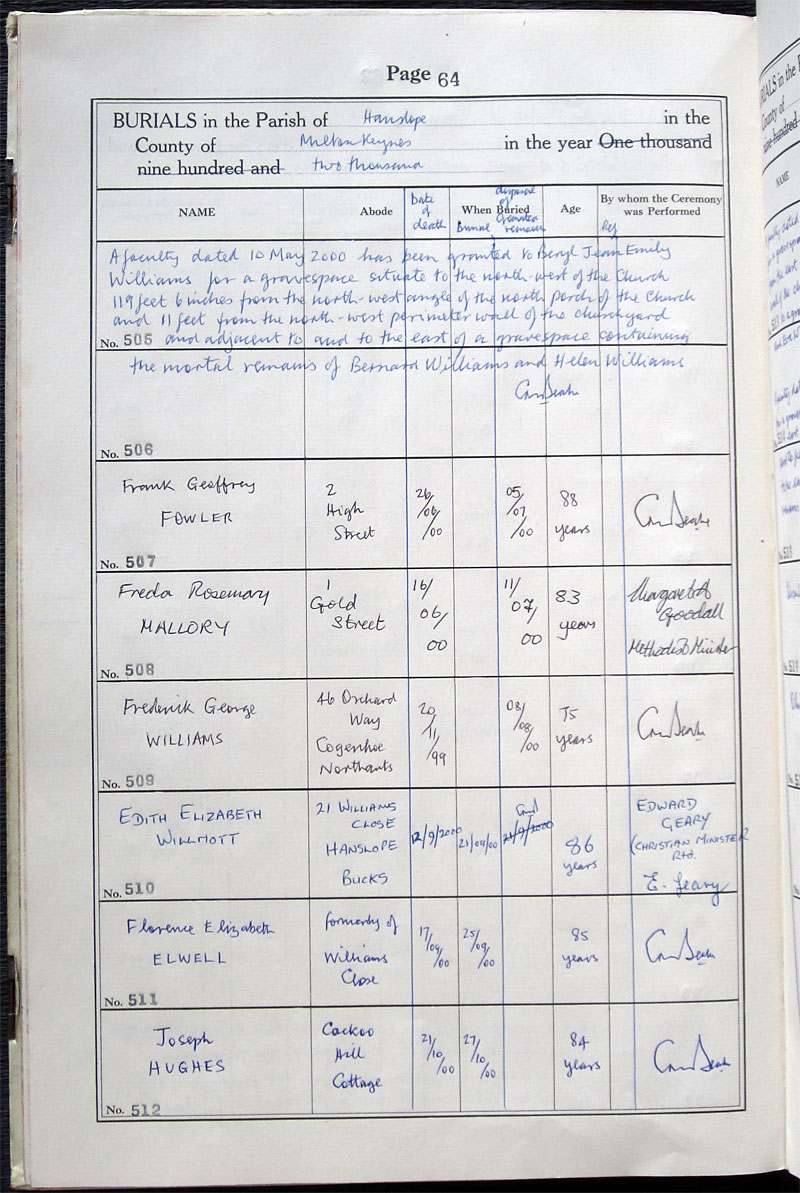 Page 64
BURIALS in the Parish of Hanslope in the
County of Milton Keynes in the year One thousand
nine hundred and two thousand
NAME
Abode
Date of death
When Buried
Burial
disposal of cremated remains
Age
By whom the Ceremony was Performed
A faculty dated 10 May 2000 has been granted to Beryl Jean Emily
Williams for a gravespace situate to the north-west of the Church
119 feet 6 inches from the north-west angle of the north porch of the Church
and 11 feet from the north-west perimeter wall of the churchyard
No. 505 and adjacent to and to the east of a gravespace containing
the mortal remains of Bernard Williams and Helen Williams
No. 506
Frank Geoffrey
FOWLER
2
High
Street
26/06/00
05/07/00
88
years
No. 507
Freda Rosemary
MALLORY
1
Gold
Street
16/06/00
11/07/00
83
years
Margaret A
Goodall
Methodist Minister
No. 508
Frederick George
WILLIAMS
46 Orchard
Way
Cogenhoe
Northants
20/11/99
08/08/00
75
years
No. 509
EDITH ELIZABETH
WILLMOTT
21 WILLIAMS
CLOSE
HANSLOPE
BUCKS
12/9/2000
21/09/00
21/9/2000
86
years
EDWARD
GEARY
(CHRISTIAN MINISTER
Rtd.
E. Geary
No. 510
Florence Elizabeth
ELWELL
formerly of
Williams
Close
17/09/00
25/09/00
85
years
No. 511
Joseph
HUGHES
Cuckoo
Hill
Cottage
21/10/00
27/10/00
84
years
No. 512